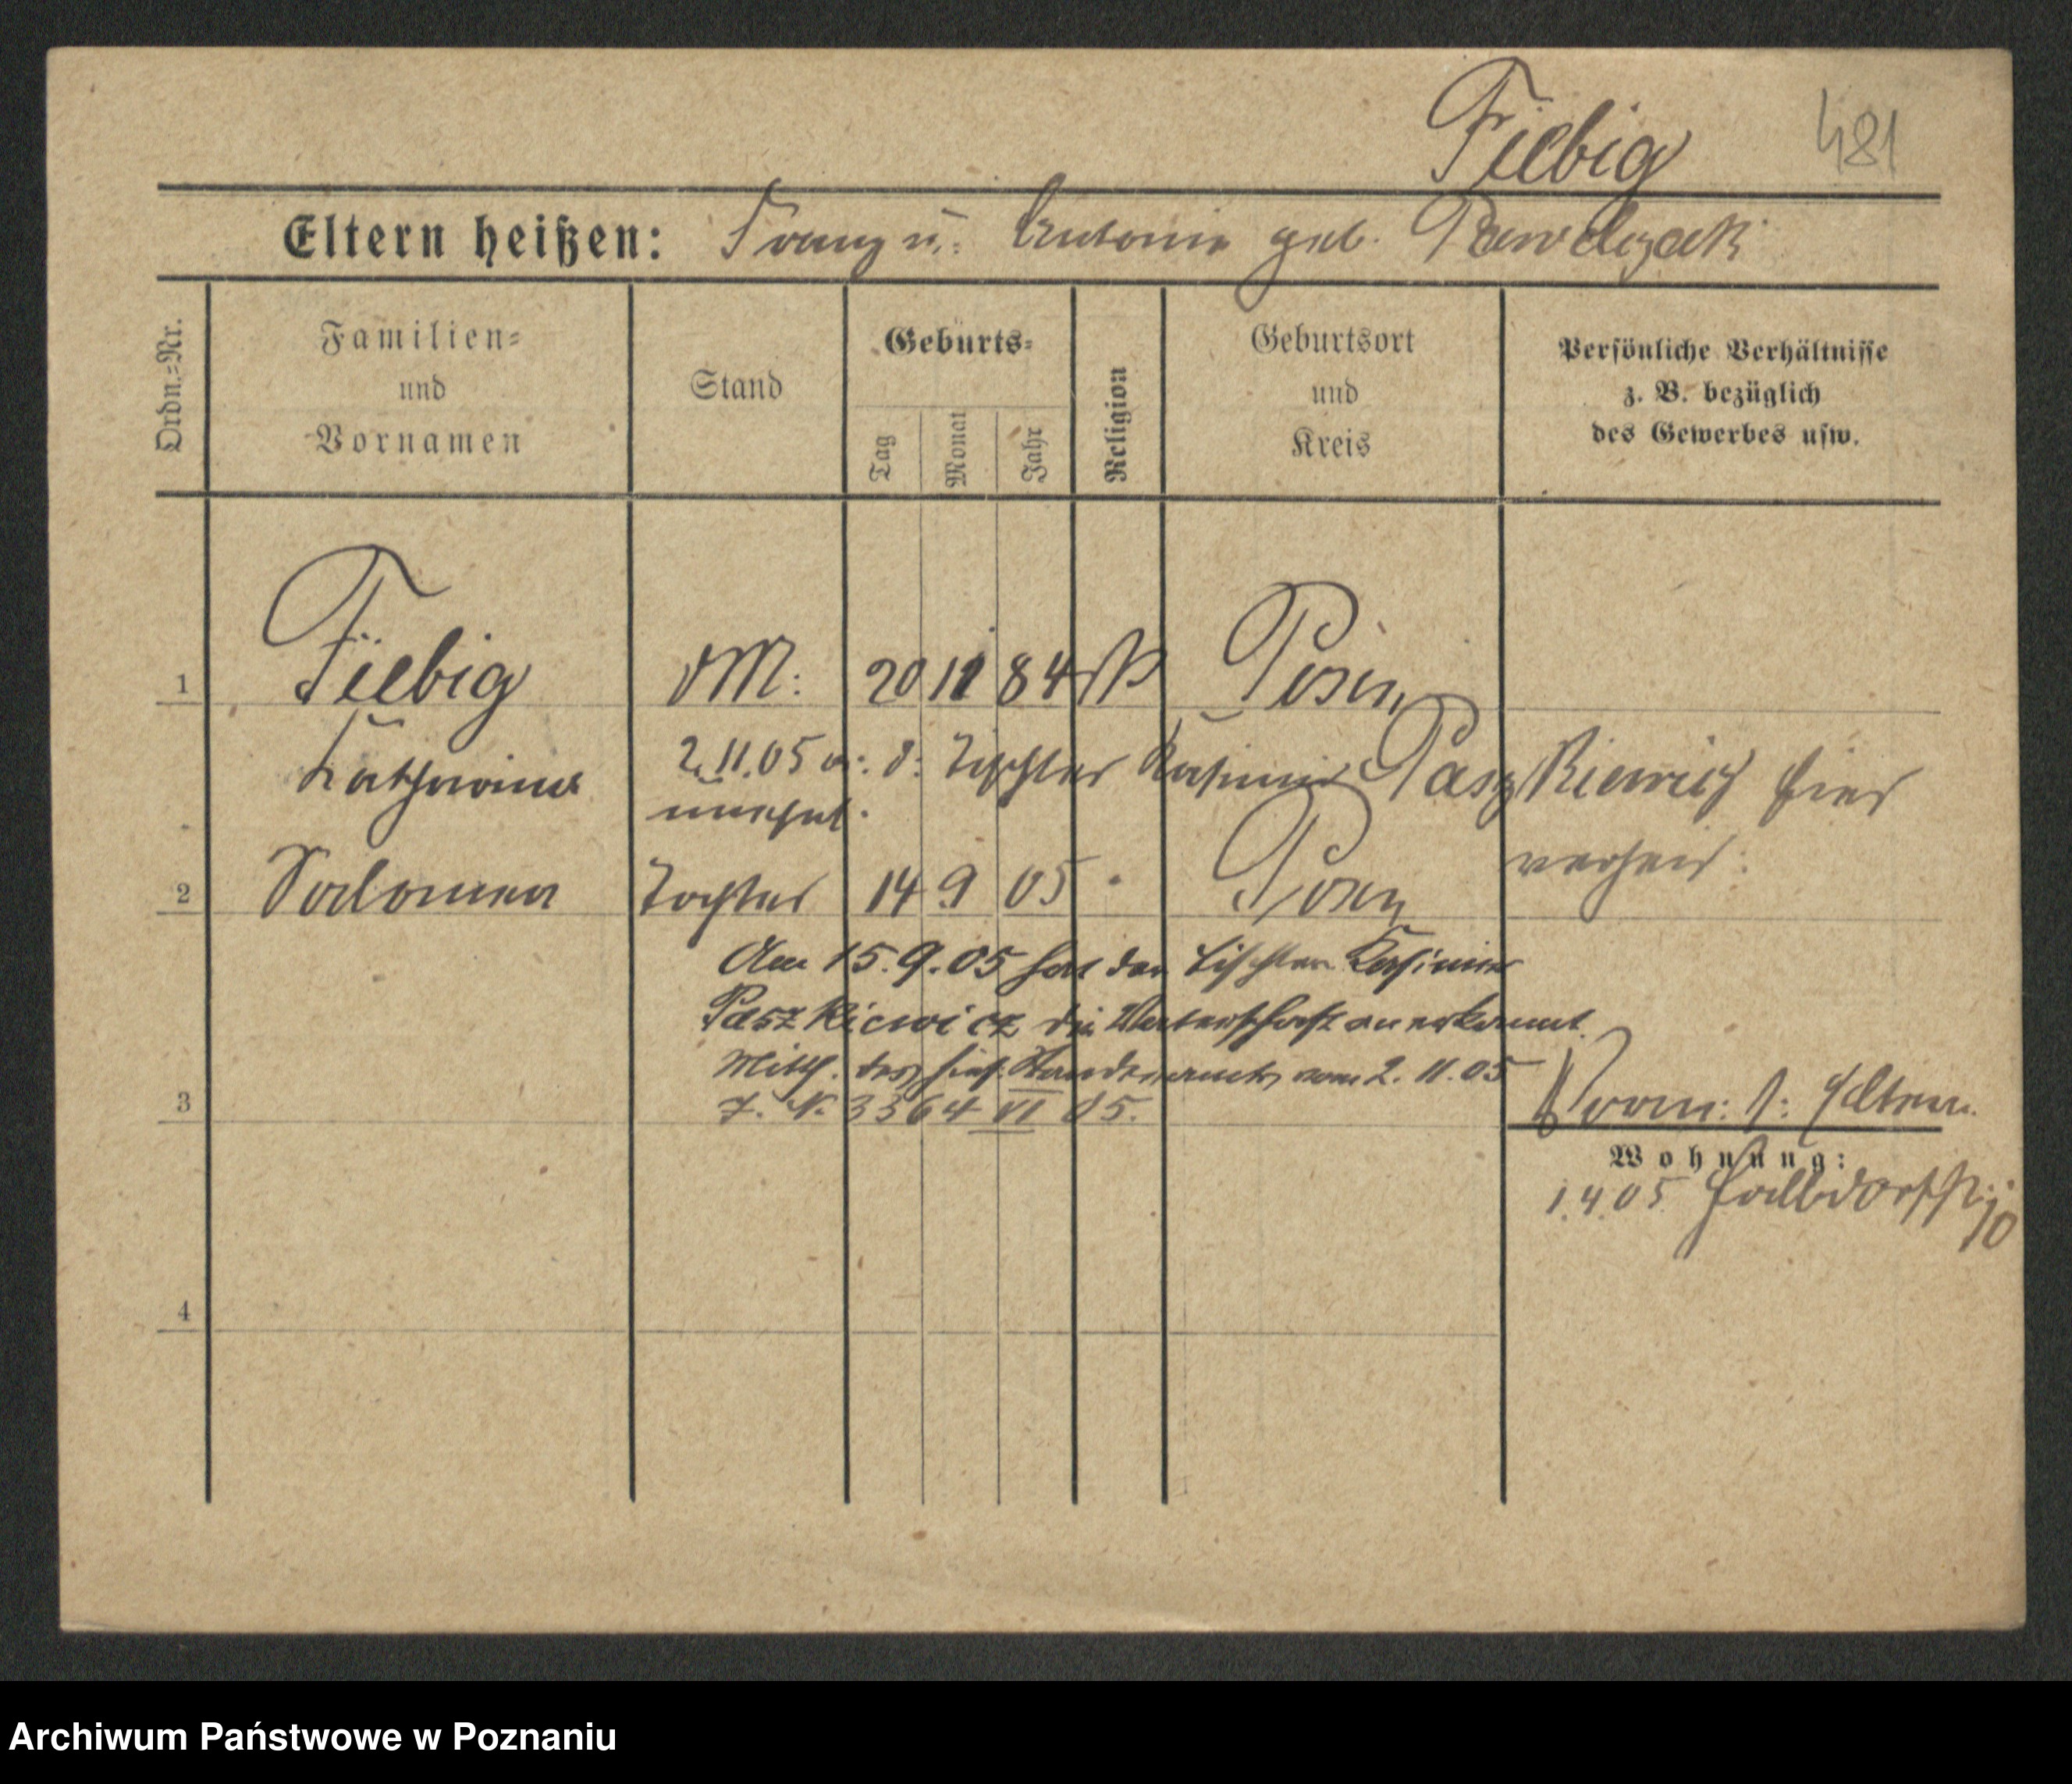 Fiebig 481
Eltern heißen: Franz u: Antonie geb. Pawelczak
Ordn.-Nr.
Familien-
und
Vornamen
Stand
Geburts-
Tag
Monat
Jahr
Religion
Geburtsort
und
Kreis
Persönliche Verhältnisse
z. B. bezüglich
des Gewerbes usw.
1 Fiebig 20 11 84 Posen
Katharina 2.11.05 m: d: Tischler Kasimir Paszkiewicz hier
unehel. verheir:
2 Salomea Tochter 14 9 05 Posen
Am 15.9.05 hat der Tischler Kasimir
Paszkiewicz die Vaterschaft anerkannt.
Mittl. des hies. Standesamts vom 2.11.05
J. N. 3364 VI 05.
3 Vorm: s: Eltern
Wohnung:
1.4.05 Halbdorfstr. 10
4
Archiwum Państwowe w Poznaniu